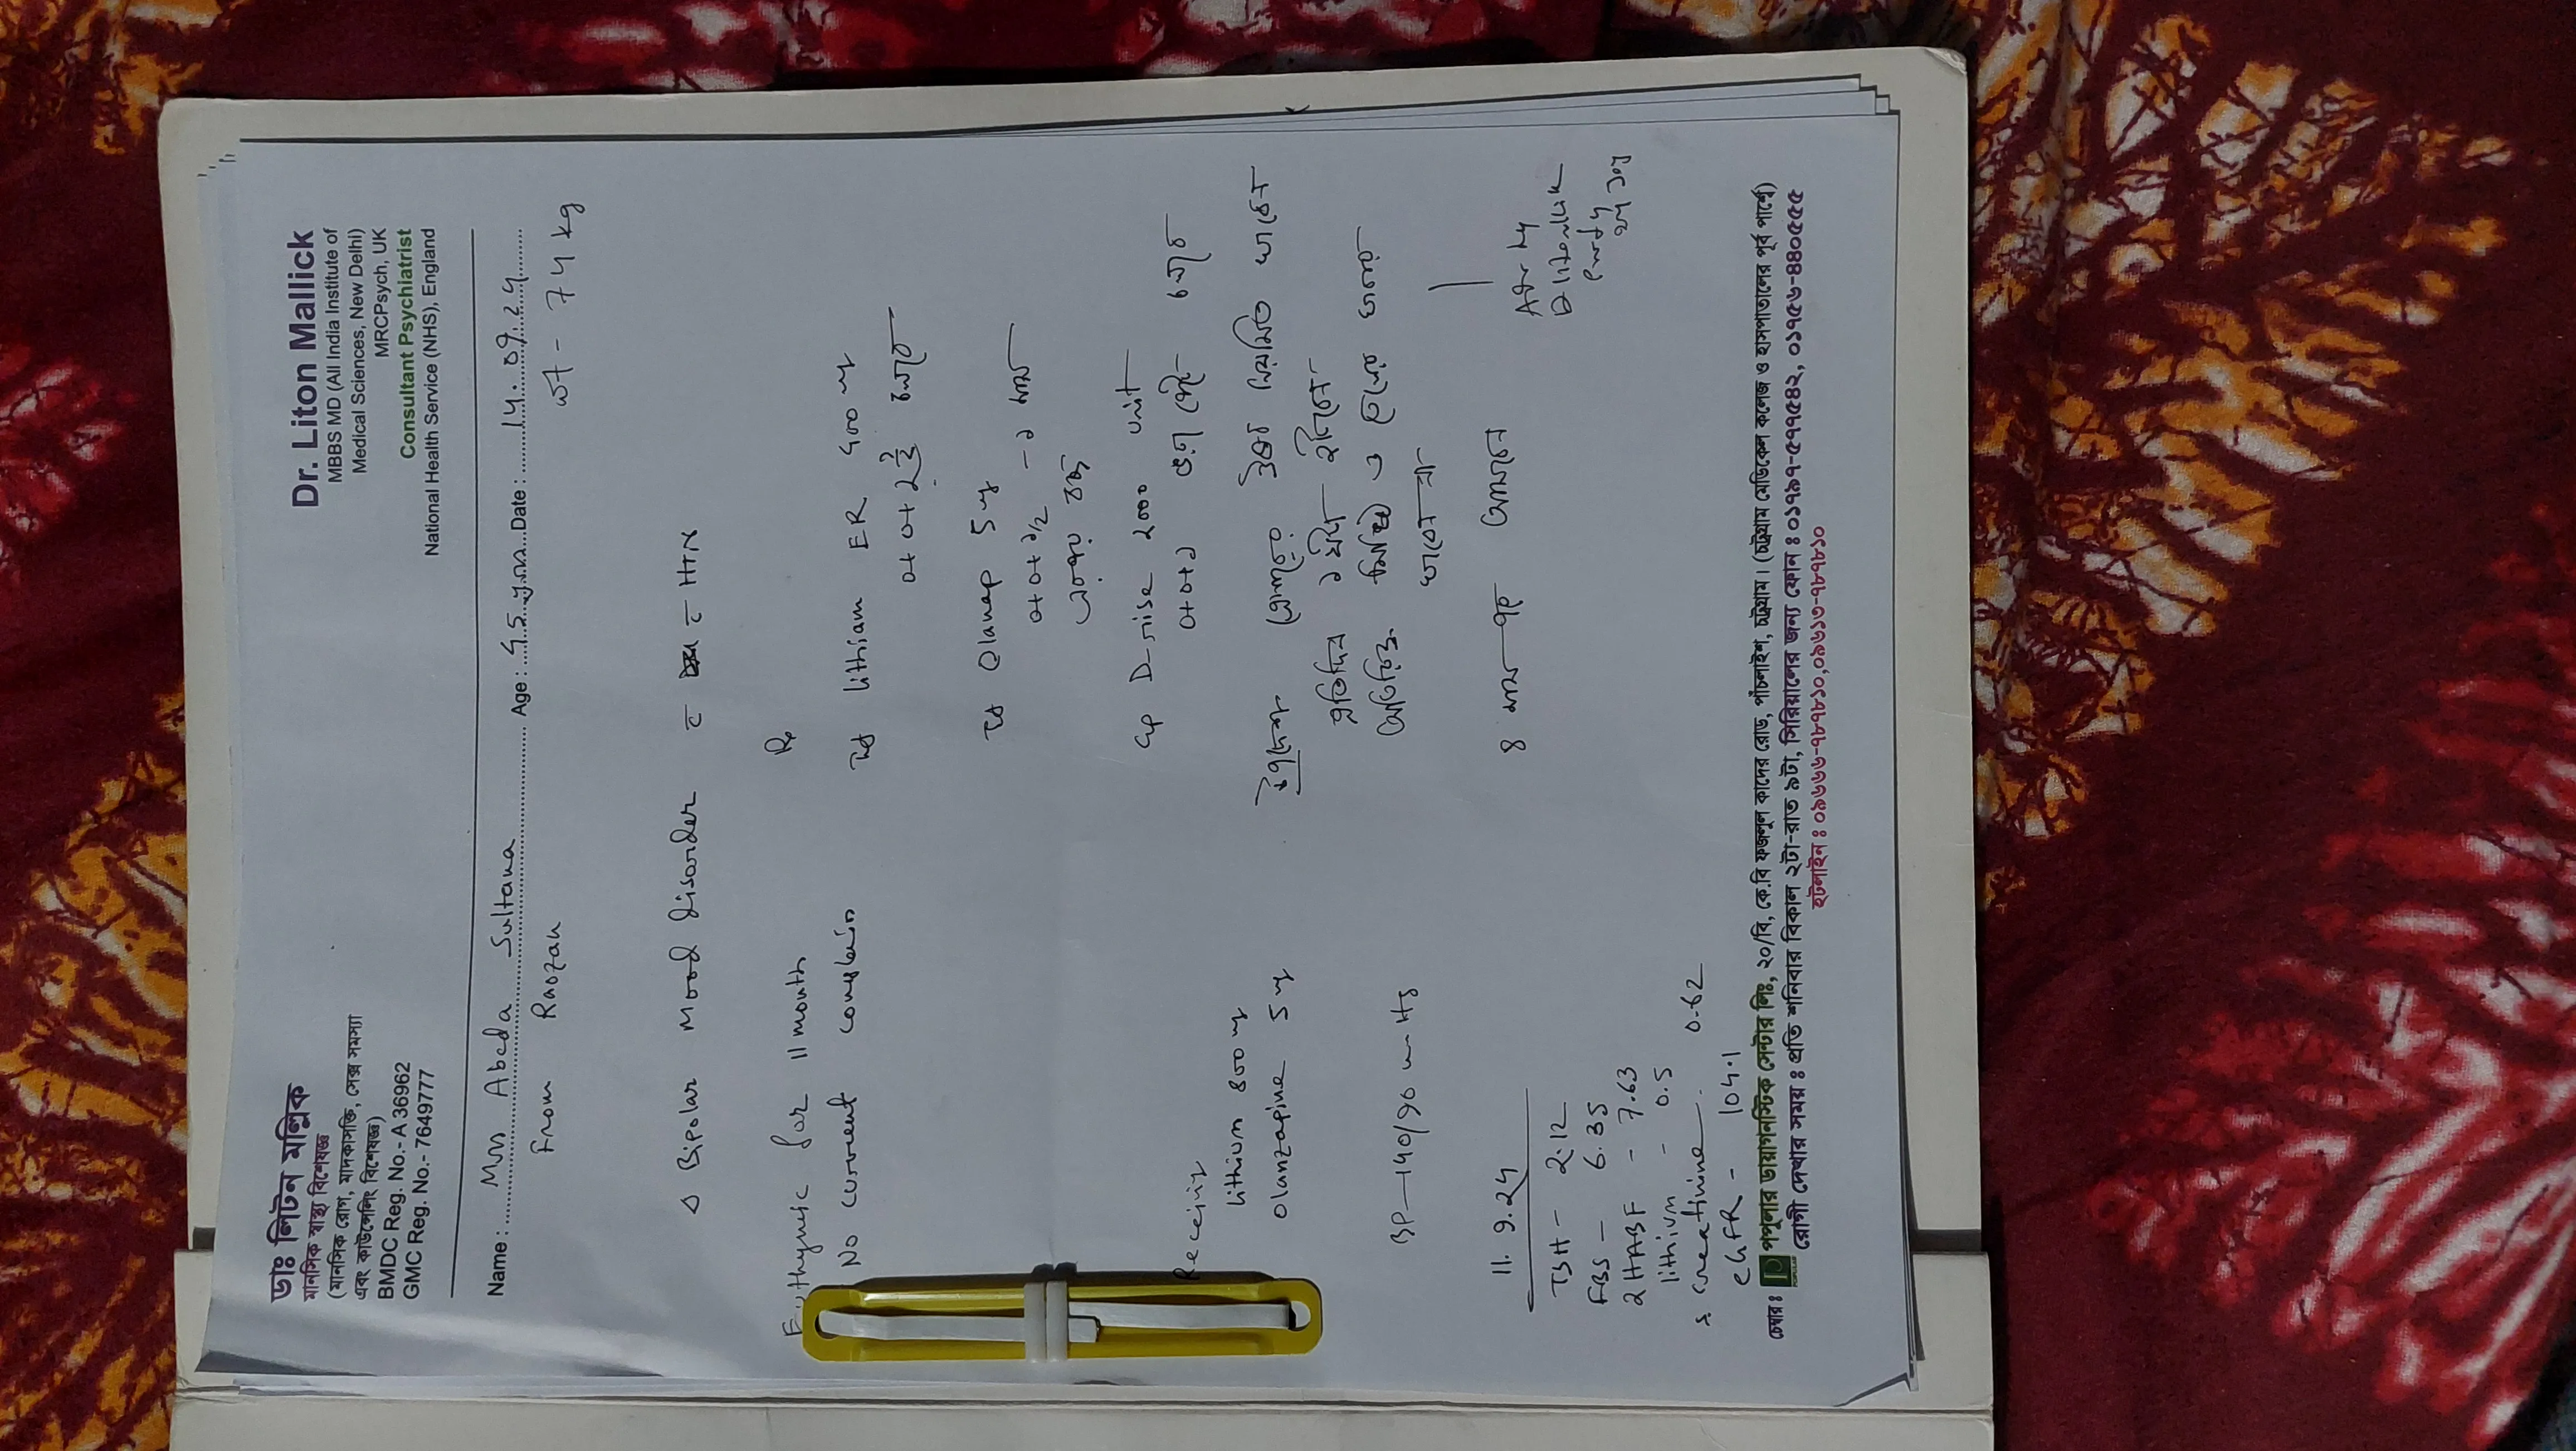 ডাঃ লিটন মল্লিক
মানসিক স্বাস্থ্য বিশেষজ্ঞ
(মানসিক রোগ, মাদকাসক্তি, সেক্স সমস্যা
এবং কাউন্সেলিং বিশেষজ্ঞ)
BMDC Reg. No.- A 36962
GMC Reg. No.- 7649777
Dr. Liton Mallick
MBBS MD (All India Institute of
Medical Sciences, New Delhi)
MRCPsych, UK
Consultant Psychiatrist
National Health Service (NHS), England
Name : Mrs Abeda Sultana Age : 45 yrs Date : 14.09.24
From Raozan
wt - 74 kg
Δ Bipolar Mood disorder c̄ c̄ HTN
Euthymic for 11 month
No current complain
Receiving
lithium 800 mg
olanzapine 5 mg
BP - 140/90 mmHg
11.9.24
TSH - 2.12
FBS - 6.35
2HABF - 7.63
lithium - 0.5
s. creatinine - 0.62
eGFR - 104.1
Rx
Tab lithium ER 400 mg
০+০+২টি
Tab Olanap 5 mg
০+০+১/২ - ১ মাস
এরপর বন্ধ
Cap D-rise 2000 unit
০+০+১
উপদেশ
প্রতিদিন ১ ঘন্টা হাঁটবেন
অতিরিক্ত মিষ্টি ও তেলের খাবার
খাবেন না
৪ মাস পর আসবেন
চেম্বার : পপুলার ডায়াগনস্টিক সেন্টার লিঃ, ২০/বি, কে.বি ফজলুল কাদের রোড, পাঁচলাইশ, চট্টগ্রাম। (চট্টগ্রাম মেডিকেল কলেজ ও হাসপাতালের পূর্ব পার্শ্বে)
রোগী দেখার সময় : প্রতি শনিবার বিকাল ২টা-রাত ৯টা, সিরিয়ালের জন্য ফোন : ০১৭৯৭-৫৭৭৫৪২, ০১৭৫৬-৪৪০৫৫৫
হটলাইন : ০৯৬৬৬-৭৮৭৮১০,০৯৬১৩-৭৮৭৮১০